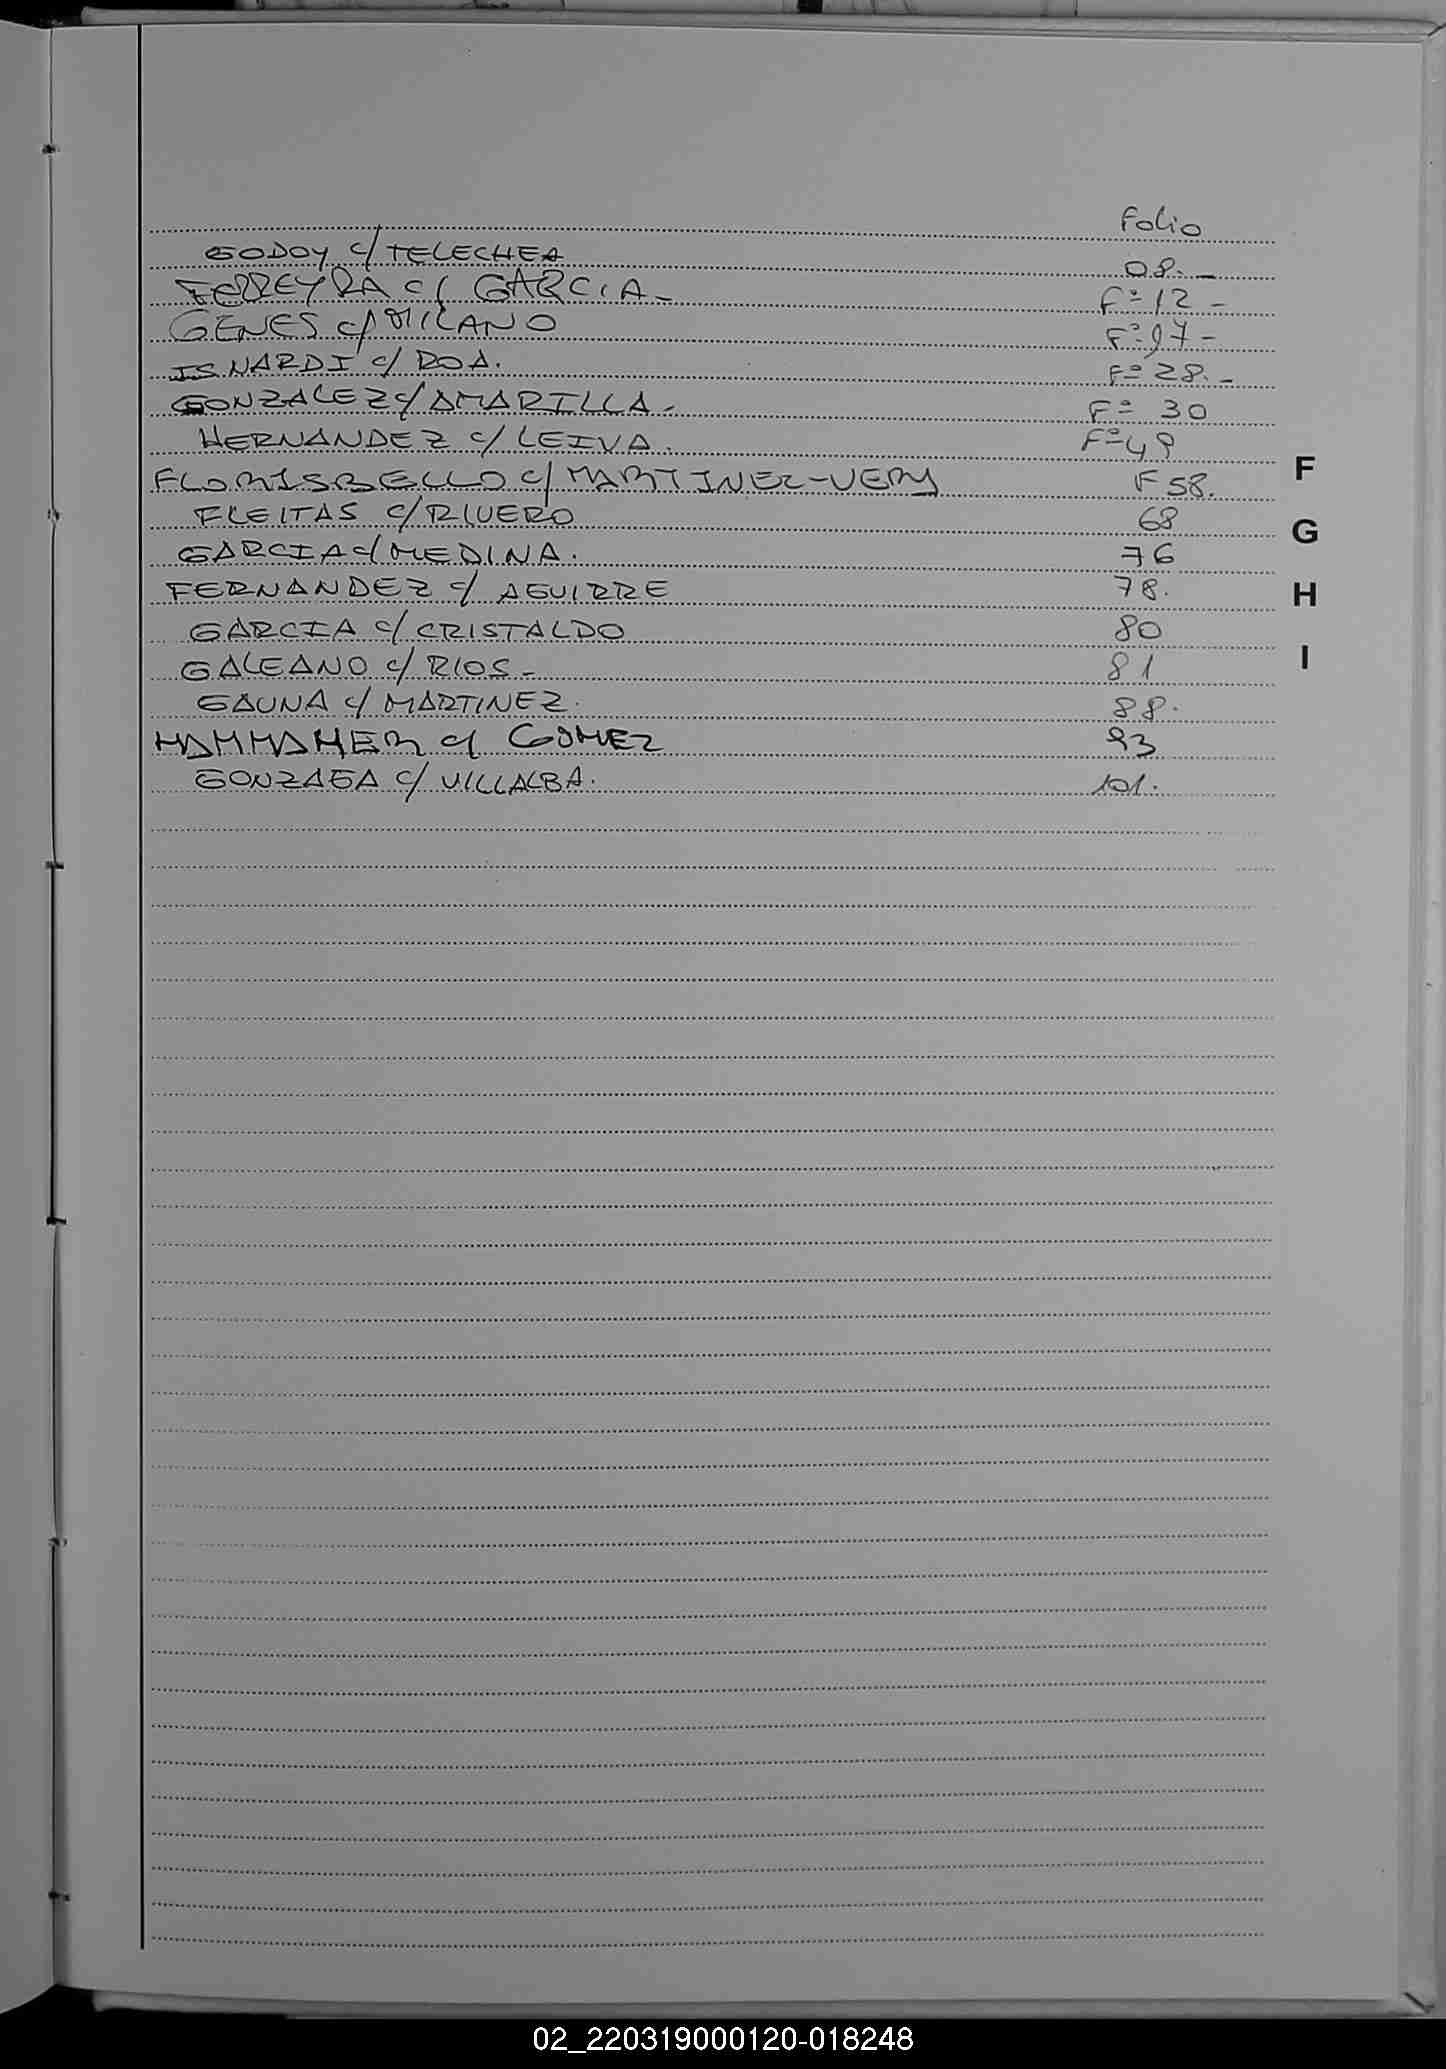 Folio
GODOY c/ TELECHEA 08.-
FERREYRA c/ GARCIA- Fº 12-
GENES c/ MILANO Fº 97-
ISNARDI c/ ROA. Fº 28.-
GONZALEZ c/ AMARILLA- Fº 30
HERNANDEZ c/ LEIVA. Fº 49
FLORISBELLO c/ MARTINEZ-VERY F 58.
FLEITAS c/ RIVERO 68
GARCIA c/ MEDINA. 76
FERNANDEZ c/ AGUIRRE 78.
GARCIA c/ CRISTALDO 80
GALEANO c/ RIOS- 81
GAUNA c/ MARTINEZ. 88.
HAMMAHER c/ GOMEZ 93
GONZAGA c/ VILLALBA. 101.
F
G
H
I
02_220319000120-018248